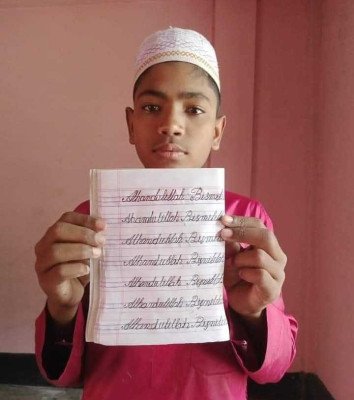 Alhamdulillah Bismil
Alhamdulillah Bismill
Alhamdulillah Bismill
Alhamdulillah Bismill
Alhamdulillah Bismilla
Alhamdulillah Bismilla
Alhamdulillah Bismilla